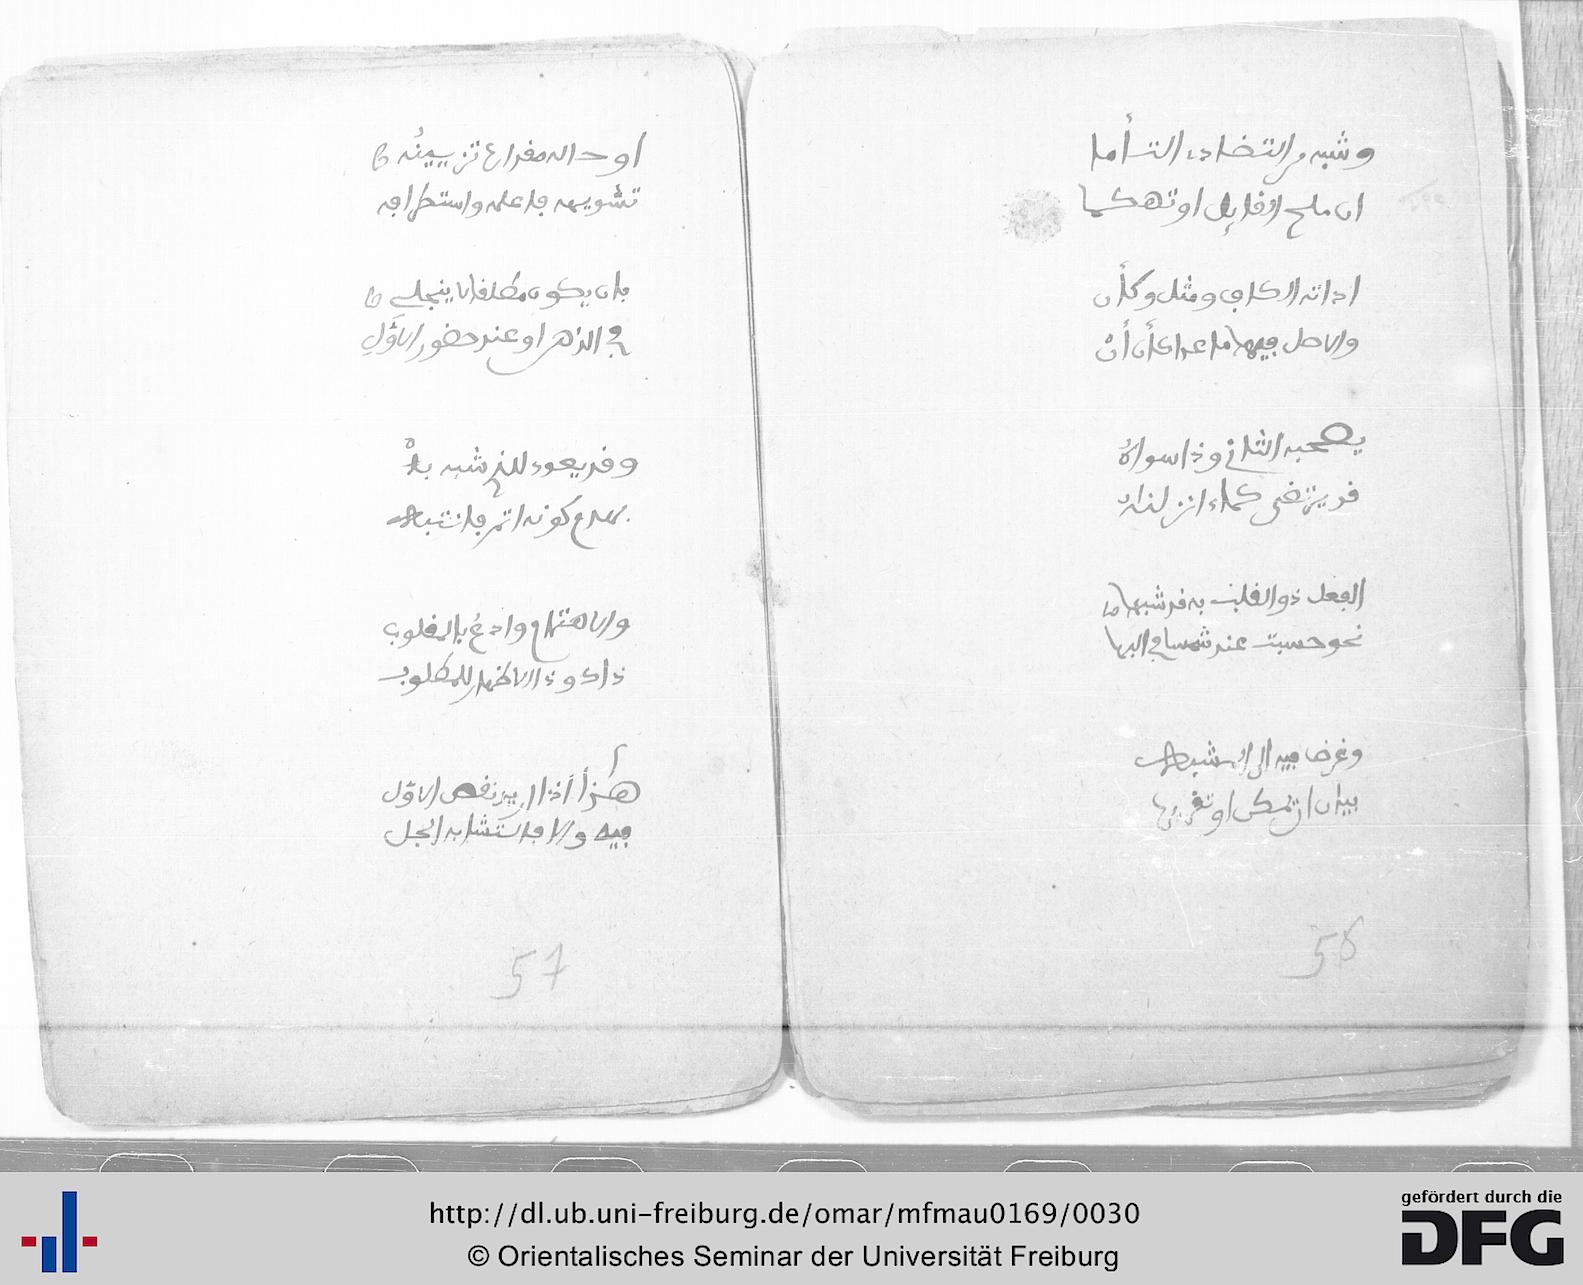 وشبه من التضاد التسأما
ان ملح القايل او تهكما
اداته الكاف ومثل وكأن
والاصل فيها ما عدا كأن أن
يصحبه الثاني وذا سواه
قد يرتضى كماء انزلناه
الفعل ذو القلب به قد شبها
نحو حسبت عند شمسا في البها
وغرض فيه الى المشبه
بيان ان تمكن او تقريرها
58
او حاله مقدار تزيينه
تشويهه فاعلمه واستطرافه
بان يكون مطلقا لا ينجلي
في الذهن او عند حضور الاول
وقد يعود للذي شبه به
بهدع كونه اتم فانتبه
والاهتمام وادع بالمقلوب
ذاك وذا الاظهار للمطلوب
هذا أذا ا يرد نقص الاول
فيه والا فالتشابه الجل
57
http://dl.ub.uni-freiburg.de/omar/mfmau0169/0030
© Orientalisches Seminar der Universität Freiburg
gefördert durch die
DFG